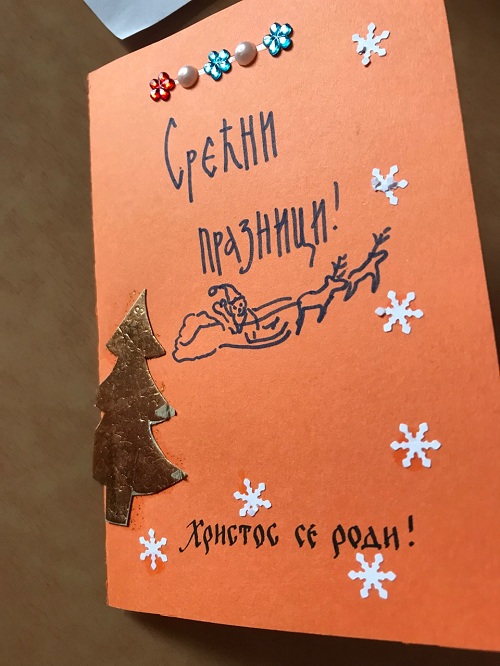 Срећни
празници!
Христос се роди!